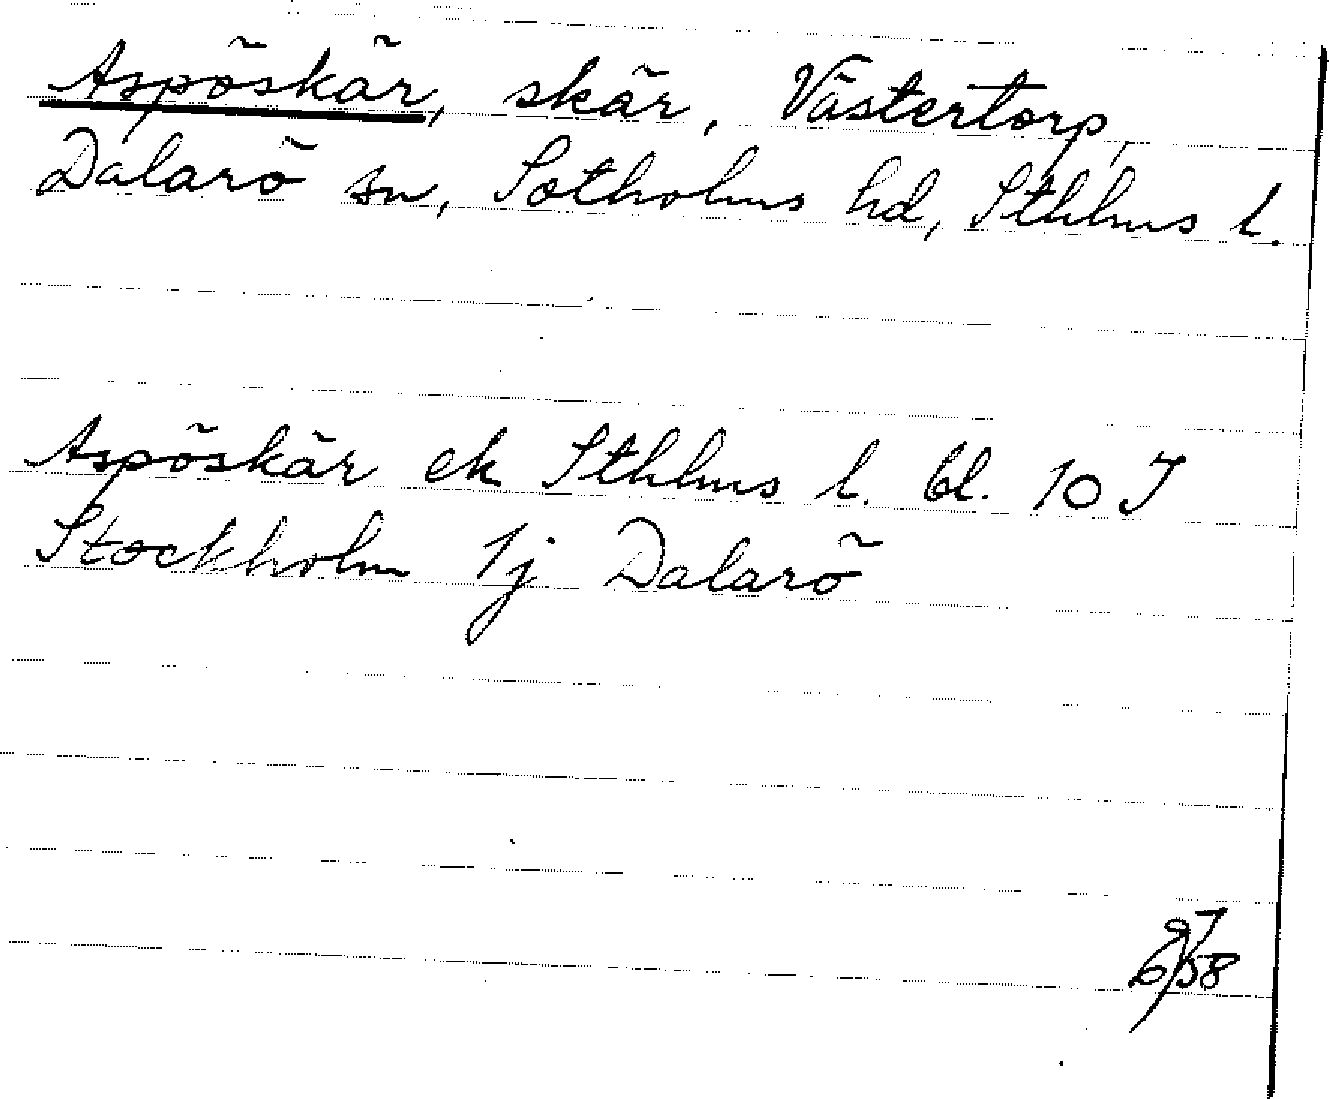 Aspöskär, skär, Västertorp,
Dalarö sn, Sotholms hd, Sthlms l.
Aspöskär ek Sthlms l. bl. 10 J
Stockholm 1j Dalarö